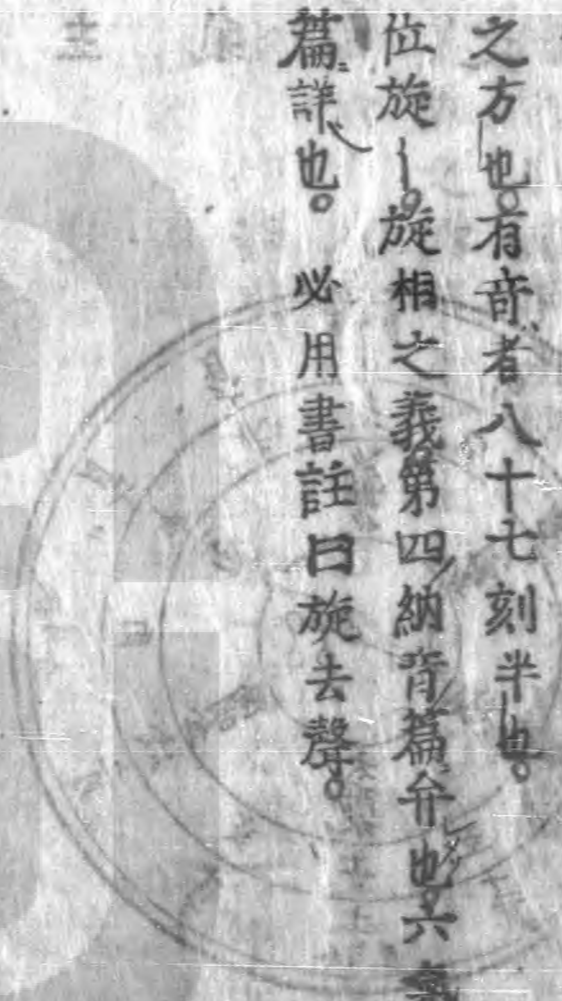 之方也。有音者八十七刻半也。
位旋〡。旋相之義第四納音篇弁也。六
篇詳也。 必用書註曰旋去聲。